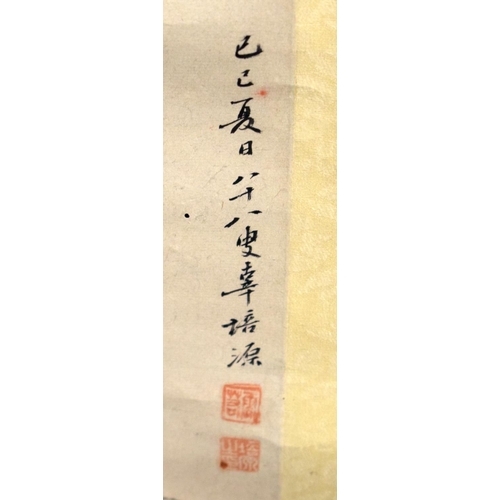 己巳夏日八十八叟辜培源